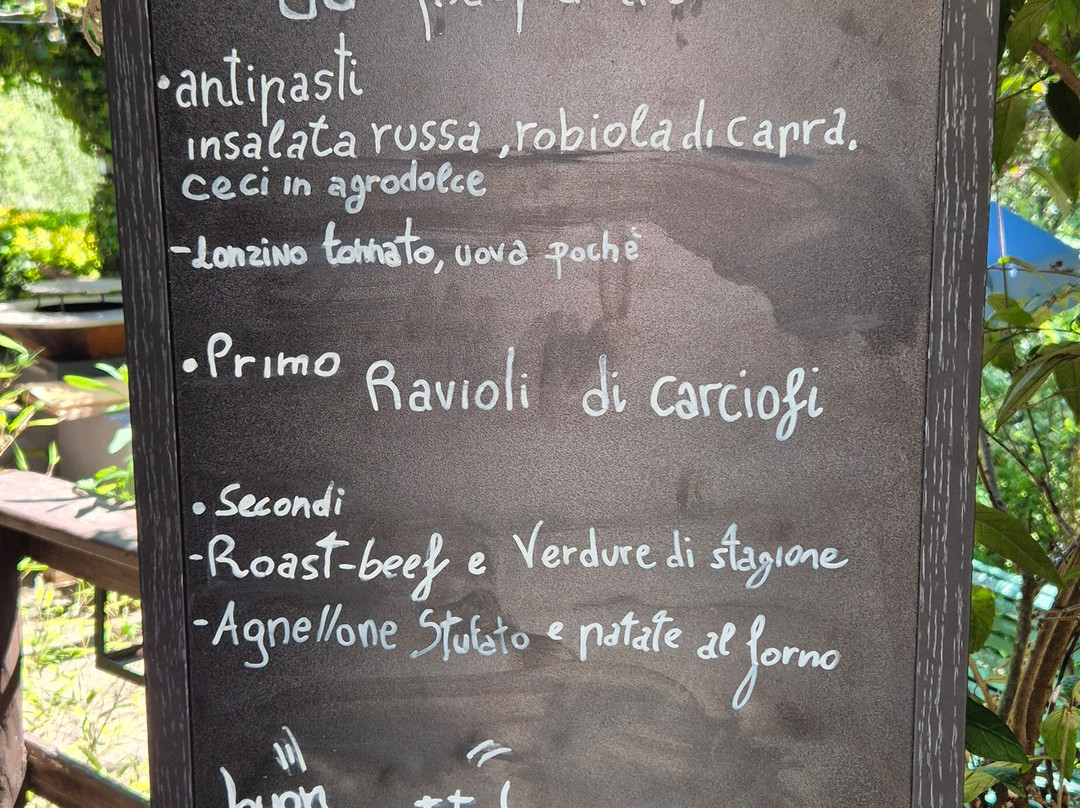 • antipasti
insalata russa, robiola di capra.
ceci in agrodolce
- Lonzino tonnato, uova pochè
• Primo Ravioli di carciofi
• Secondi
- Roast-beef e Verdure di stagione
- Agnellone Stufato e patate al forno
buon